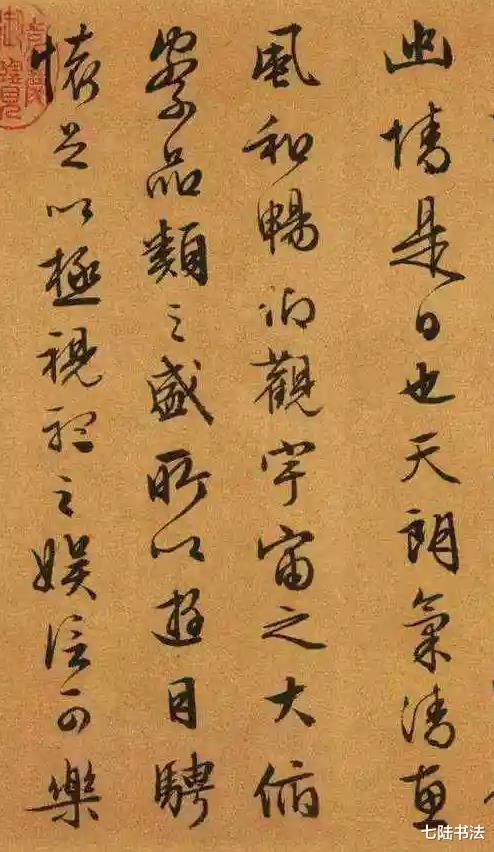 幽情是日也天朗氣清惠
風和暢仰觀宇宙之大俯
察品類之盛所以遊目騁
懷足以極視聽之娛信可樂
七陆书法